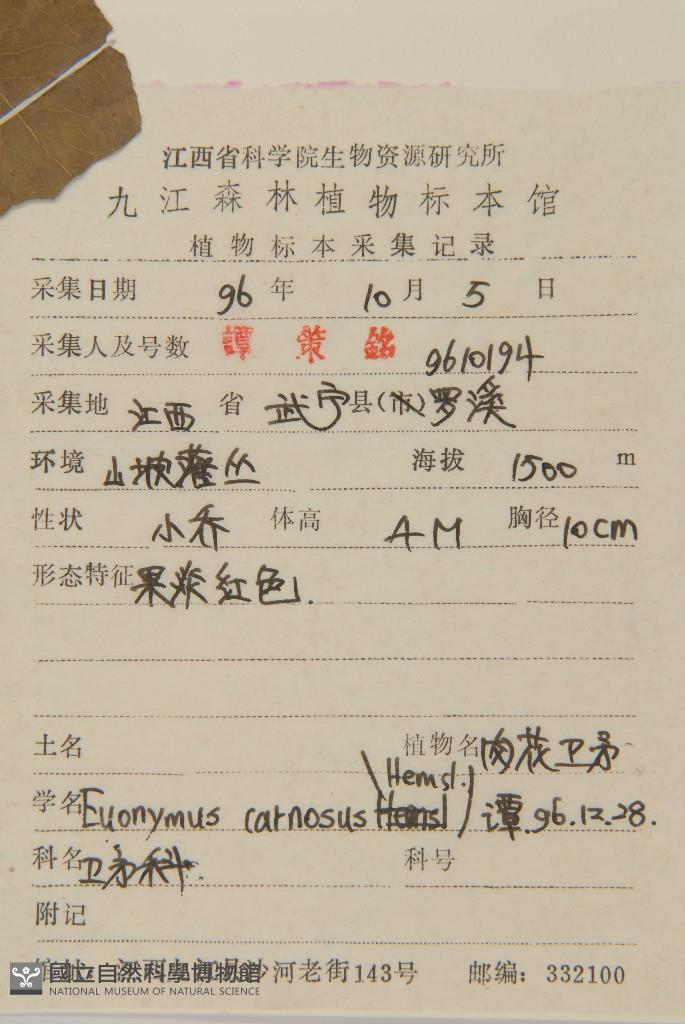 江西省科学院生物资源研究所
九江森林植物标本馆
植物标本采集记录
采集日期 96 年 10 月 5 日
采集人及号数 譚策銘 9610194
采集地 江西 省 武宁县(市)罗溪
环境 山坡灌丛 海拔 1500 m
性状 小乔 体高 4M 胸径 10cm
形态特征 果炎红色.
土名 植物名 肉花卫矛
Hemsl.
学名 Euonymus carnosus 谭.96.12.28.
科名 卫矛科. 科号
附记
沙河老街143号 邮编: 332100
國立自然科學博物館
NATIONAL MUSEUM OF NATURAL SCIENCE